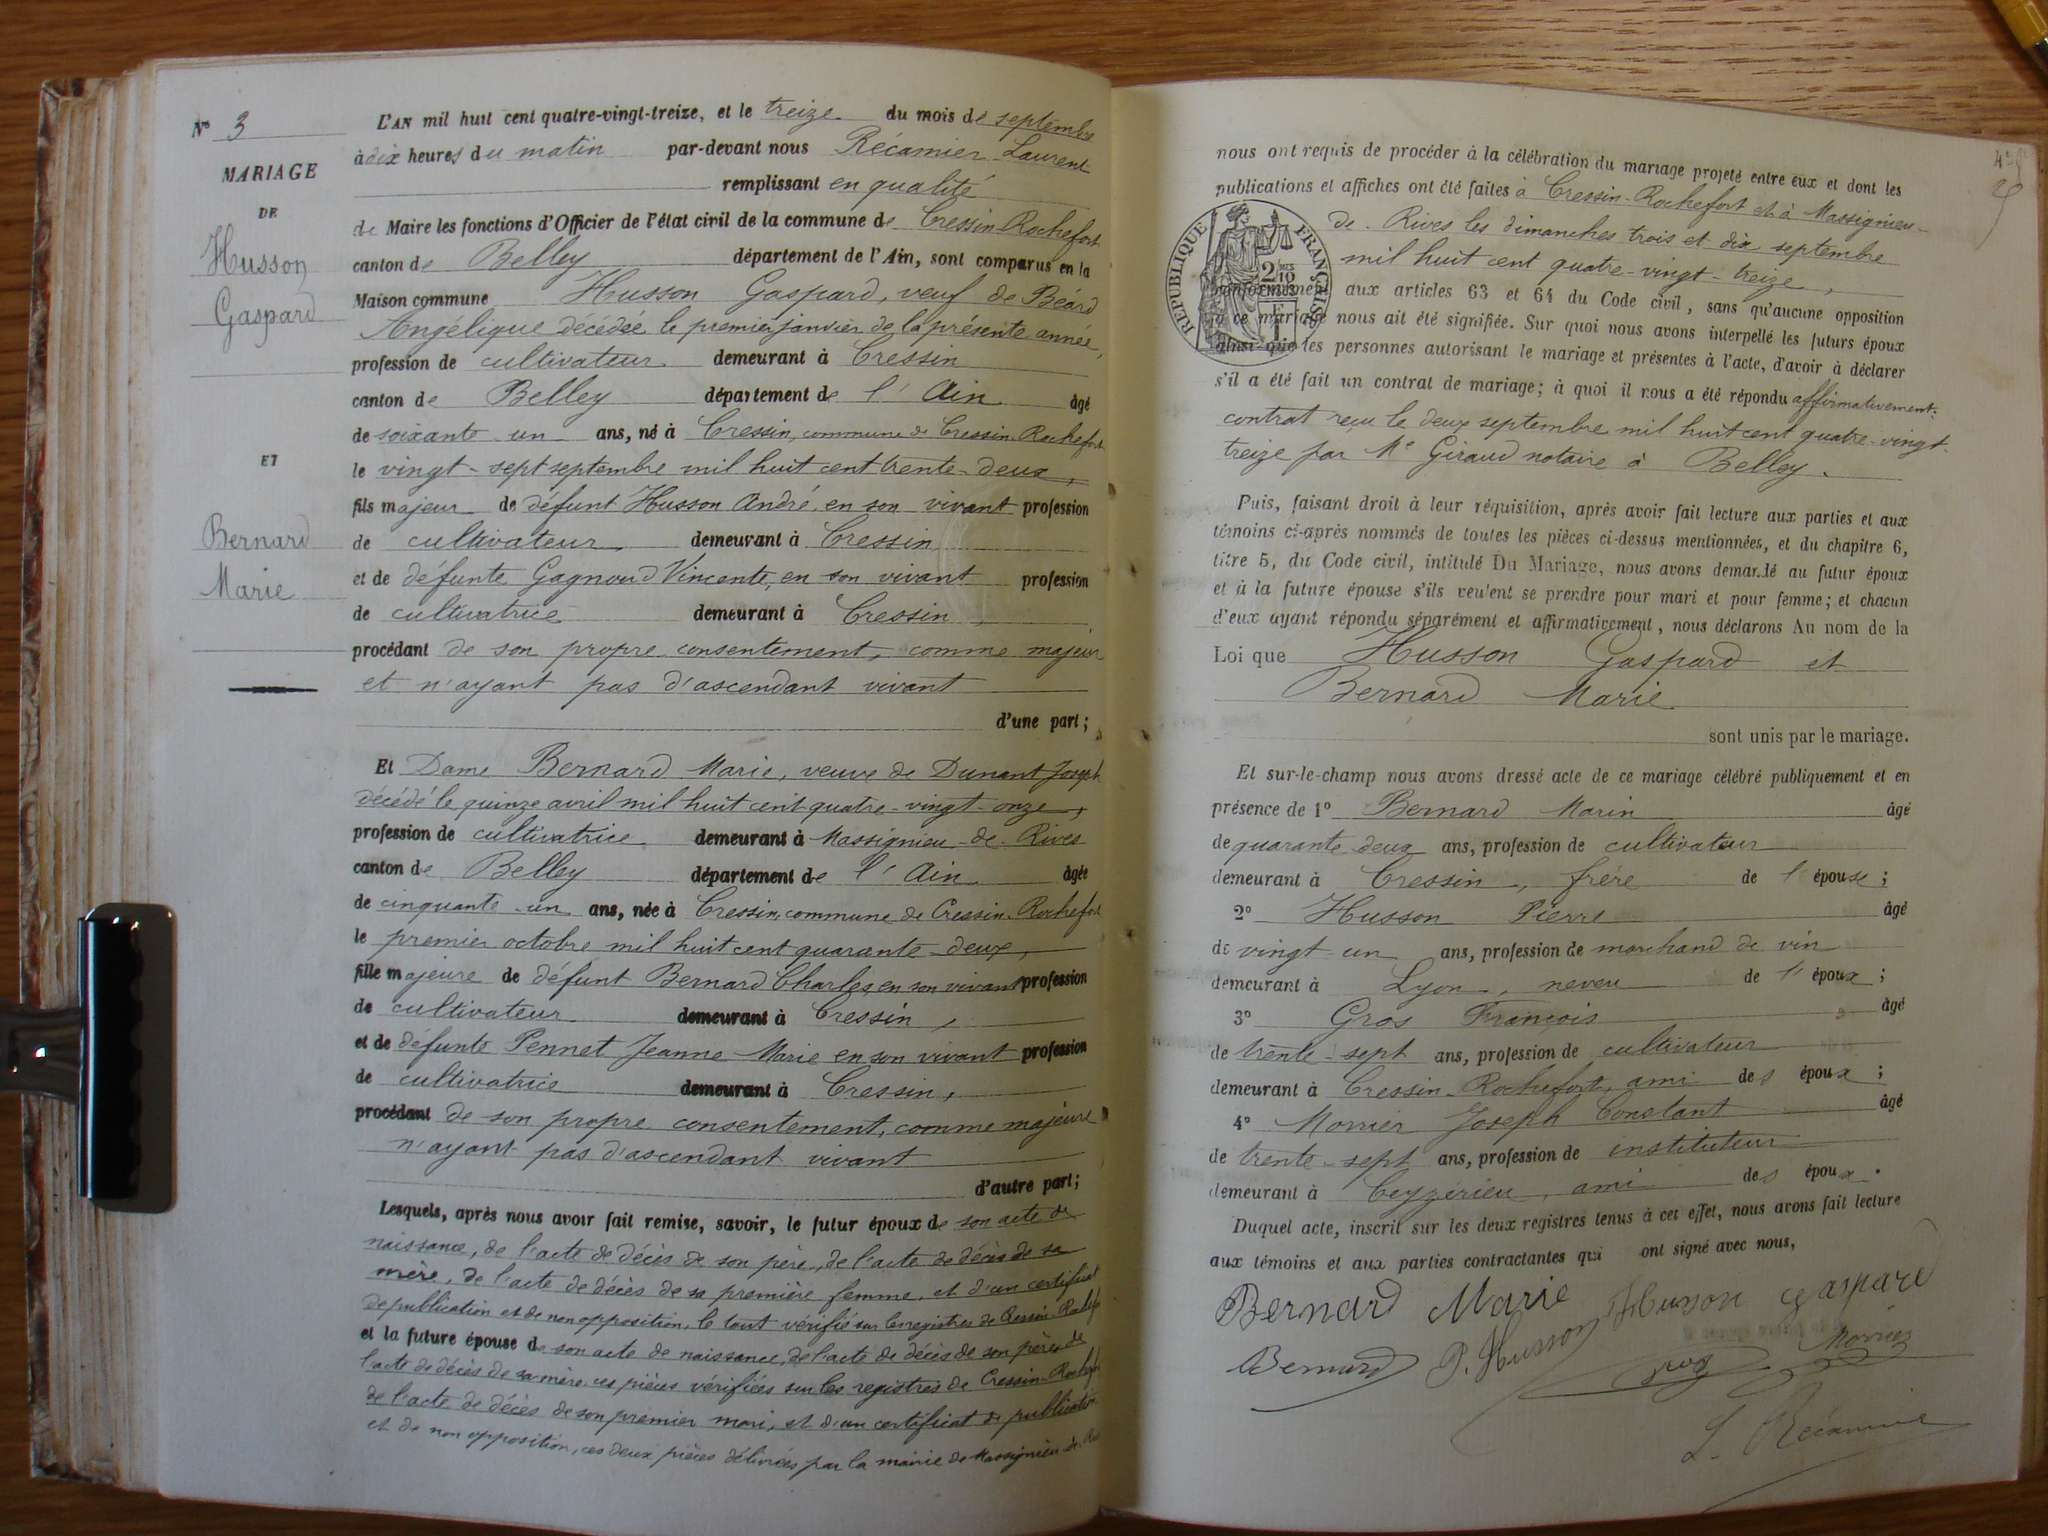 N° 3
MARIAGE
DE
Husson
Gaspard
ET
Bernard
Marie
L'AN mil huit cent quatre-vingt-treize, et le treize du mois de septembre
à dix heures du matin par-devant nous Récamier Laurent
remplissant en qualité
de Maire les fonctions d'Officier de l'état civil de la commune de Cressin-Rochefort
canton de Belley département de l'Ain, sont comparus en la
Maison commune Husson Gaspard, veuf de Béard
Angélique décédée le premier janvier de la présente année,
profession de cultivateur demeurant à Cressin
canton de Belley département de l'Ain âgé
de soixante un ans, né à Cressin, commune de Cressin-Rochefort
le vingt-sept septembre mil huit cent trente-deux,
fils majeur de défunt Husson André, en son vivant profession
de cultivateur demeurant à Cressin
et de défunte Gagnoud Vincente, en son vivant profession
de cultivatrice demeurant à Cressin,
procédant de son propre consentement, comme majeur
et n'ayant pas d'ascendant vivant
d'une part;
Et Dame Bernard Marie, veuve de Dunant Joseph
décédé le quinze avril mil huit cent quatre-vingt-onze,
profession de cultivatrice demeurant à Massignieu-de-Rives
canton de Belley département de l'Ain âgée
de cinquante-un ans, née à Cressin, commune de Cressin-Rochefort
le premier octobre mil huit cent quarante-deux,
fille majeure de défunt Bernard Charles, en son vivant profession
de cultivateur demeurant à Cressin,
et de défunte Pennet Jeanne-Marie en son vivant profession
de cultivatrice demeurant à Cressin,
procédant de son propre consentement, comme majeure
n'ayant pas d'ascendant vivant
d'autre part;
Lesquels, après nous avoir fait remise, savoir, le futur époux de son acte de
naissance, de l'acte de décès de son père, de l'acte de décès de sa
mère, de l'acte de décès de sa première femme, et d'un certificat
de publication et de non opposition, le tout vérifié sur les registres de Cressin-Rochefort
et la future épouse de son acte de naissance, de l'acte de décès de son père, de
l'acte de décès de sa mère, ces pièces vérifiées sur les registres de Cressin-Rochefort
de l'acte de décès de son premier mari, et d'un certificat de publication
et de non opposition, ces deux pièces délivrées par la mairie de Massignieu-de-
nous ont requis de procéder à la célébration du mariage projeté entre eux et dont les
publications et affiches ont été faites à Cressin-Rochefort et à Massignieu-
de-Rives les dimanches trois et dix septembre
mil huit cent quatre-vingt-treize,
RÉPUBLIQUE FRANÇAISE
conformément aux articles 63 et 64 du Code civil, sans qu'aucune opposition
à ce mariage nous ait été signifiée. Sur quoi nous avons interpellé les futurs époux
ainsi que les personnes autorisant le mariage et présentes à l'acte, d'avoir à déclarer
s'il a été fait un contrat de mariage; à quoi il nous a été répondu affirmativement:
contrat reçu le deux septembre mil huit cent quatre-vingt-
treize par Me Giraud notaire à Belley.
Puis, faisant droit à leur réquisition, après avoir fait lecture aux parties et aux
témoins ci-après nommés de toutes les pièces ci-dessus mentionnées, et du chapitre 6,
titre 5, du Code civil, intitulé Du Mariage, nous avons demandé au futur époux
et à la future épouse s'ils veulent se prendre pour mari et pour femme; et chacun
d'eux ayant répondu séparément et affirmativement, nous déclarons Au nom de la
Loi que Husson Gaspard et
Bernard Marie
sont unis par le mariage.
Et sur-le-champ nous avons dressé acte de ce mariage célébré publiquement et en
présence de 1° Bernard Marin âgé
de quarante-deux ans, profession de cultivateur
demeurant à Cressin, frère de l'épouse;
2° Husson Pierre âgé
de vingt-un ans, profession de marchand de vin
demeurant à Lyon, neveu de l'époux;
3° Gros François âgé
de trente-sept ans, profession de cultivateur
demeurant à Cressin-Rochefort, ami des époux;
4° Morrier Joseph Constant âgé
de trente-sept ans, profession de instituteur
demeurant à Ceyzérieu, ami des époux.
Duquel acte, inscrit sur les deux registres tenus à cet effet, nous avons fait lecture
aux témoins et aux parties contractantes qui ont signé avec nous,
Bernard Marie Husson Gaspard
Bernard P. Husson Gros Morrier
L. Récamier